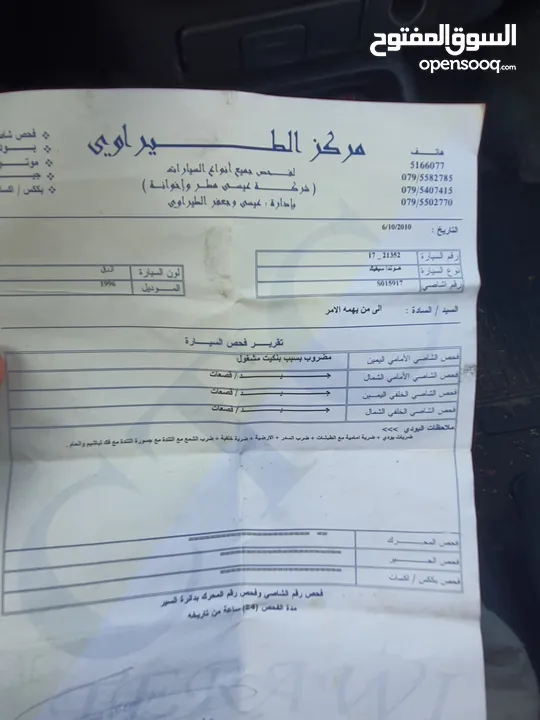 السوق المفتوح
opensooq.com
مركز الطيراوي
لفحص جميع أنواع السيارات
( شركة عيسى مطر وإخوانه )
بإدارة : عيسى وجعفر الطيراوي
هاتف
5166077
079/5582785
079/5407415
079/5502770
❖ فحص شا
❖ بودي
❖ موتو
❖ جير
❖ بكس / اكسا
التاريخ : 6/10/2010
رقم السيارة 21352 _ 17
نوع السيارة هوندا سيفيك لون السيارة
رقم الشاصي S015917 الموديل 1996
السيد / السادة : الى من يهمه الامر
تقرير فحص السيارة
فحص الشاصي الأمامي اليمين مضروب بسبب بنكيت مشغول
فحص الشاصي الأمامي الشمال جيد / قصعات
فحص الشاصي الخلفي اليمين جيد / قصعات
فحص الشاصي الخلفي الشمال جيد / قصعات
ملاحظات البودي >>>
ضربات بودي + ضربة امامية مع الطبشات + ضرب الصدر + الارضية + ضربة خلفية + ضرب الشمع مع التندة مع جسورة التندة مع فك
فحص المحرك
فحص الجير
فحص بكس / اكسات
فحص رقم الشاصي وفحص رقم المحرك بدائرة السير
مدة الفحص (24) ساعة من تاريخه